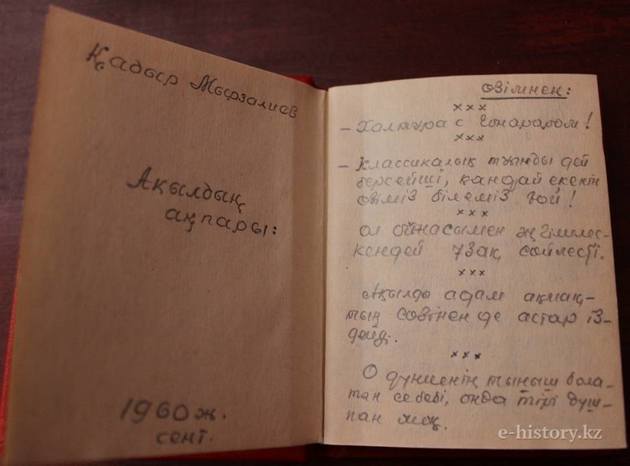 Қадыр Мырзалиев
Ақылдың
ақпары:
1960 ж.
сент.
өзімнен:
× × ×
– Халтура с гонораром!
× × ×
– Классикалық туынды дей
берсейші, қандай екенін
өзіміз білеміз ғой!
× × ×
Ол ойнасымен әңгімелес-
кендей ұзақ сөйлесті.
× × ×
Ақылды адам ақмақ-
тың сөзінен де астар із-
дейді.
× × ×
О дүниенің тыныш бола-
тын себебі, онда тірі дұш-
пан жоқ.
e-history.kz